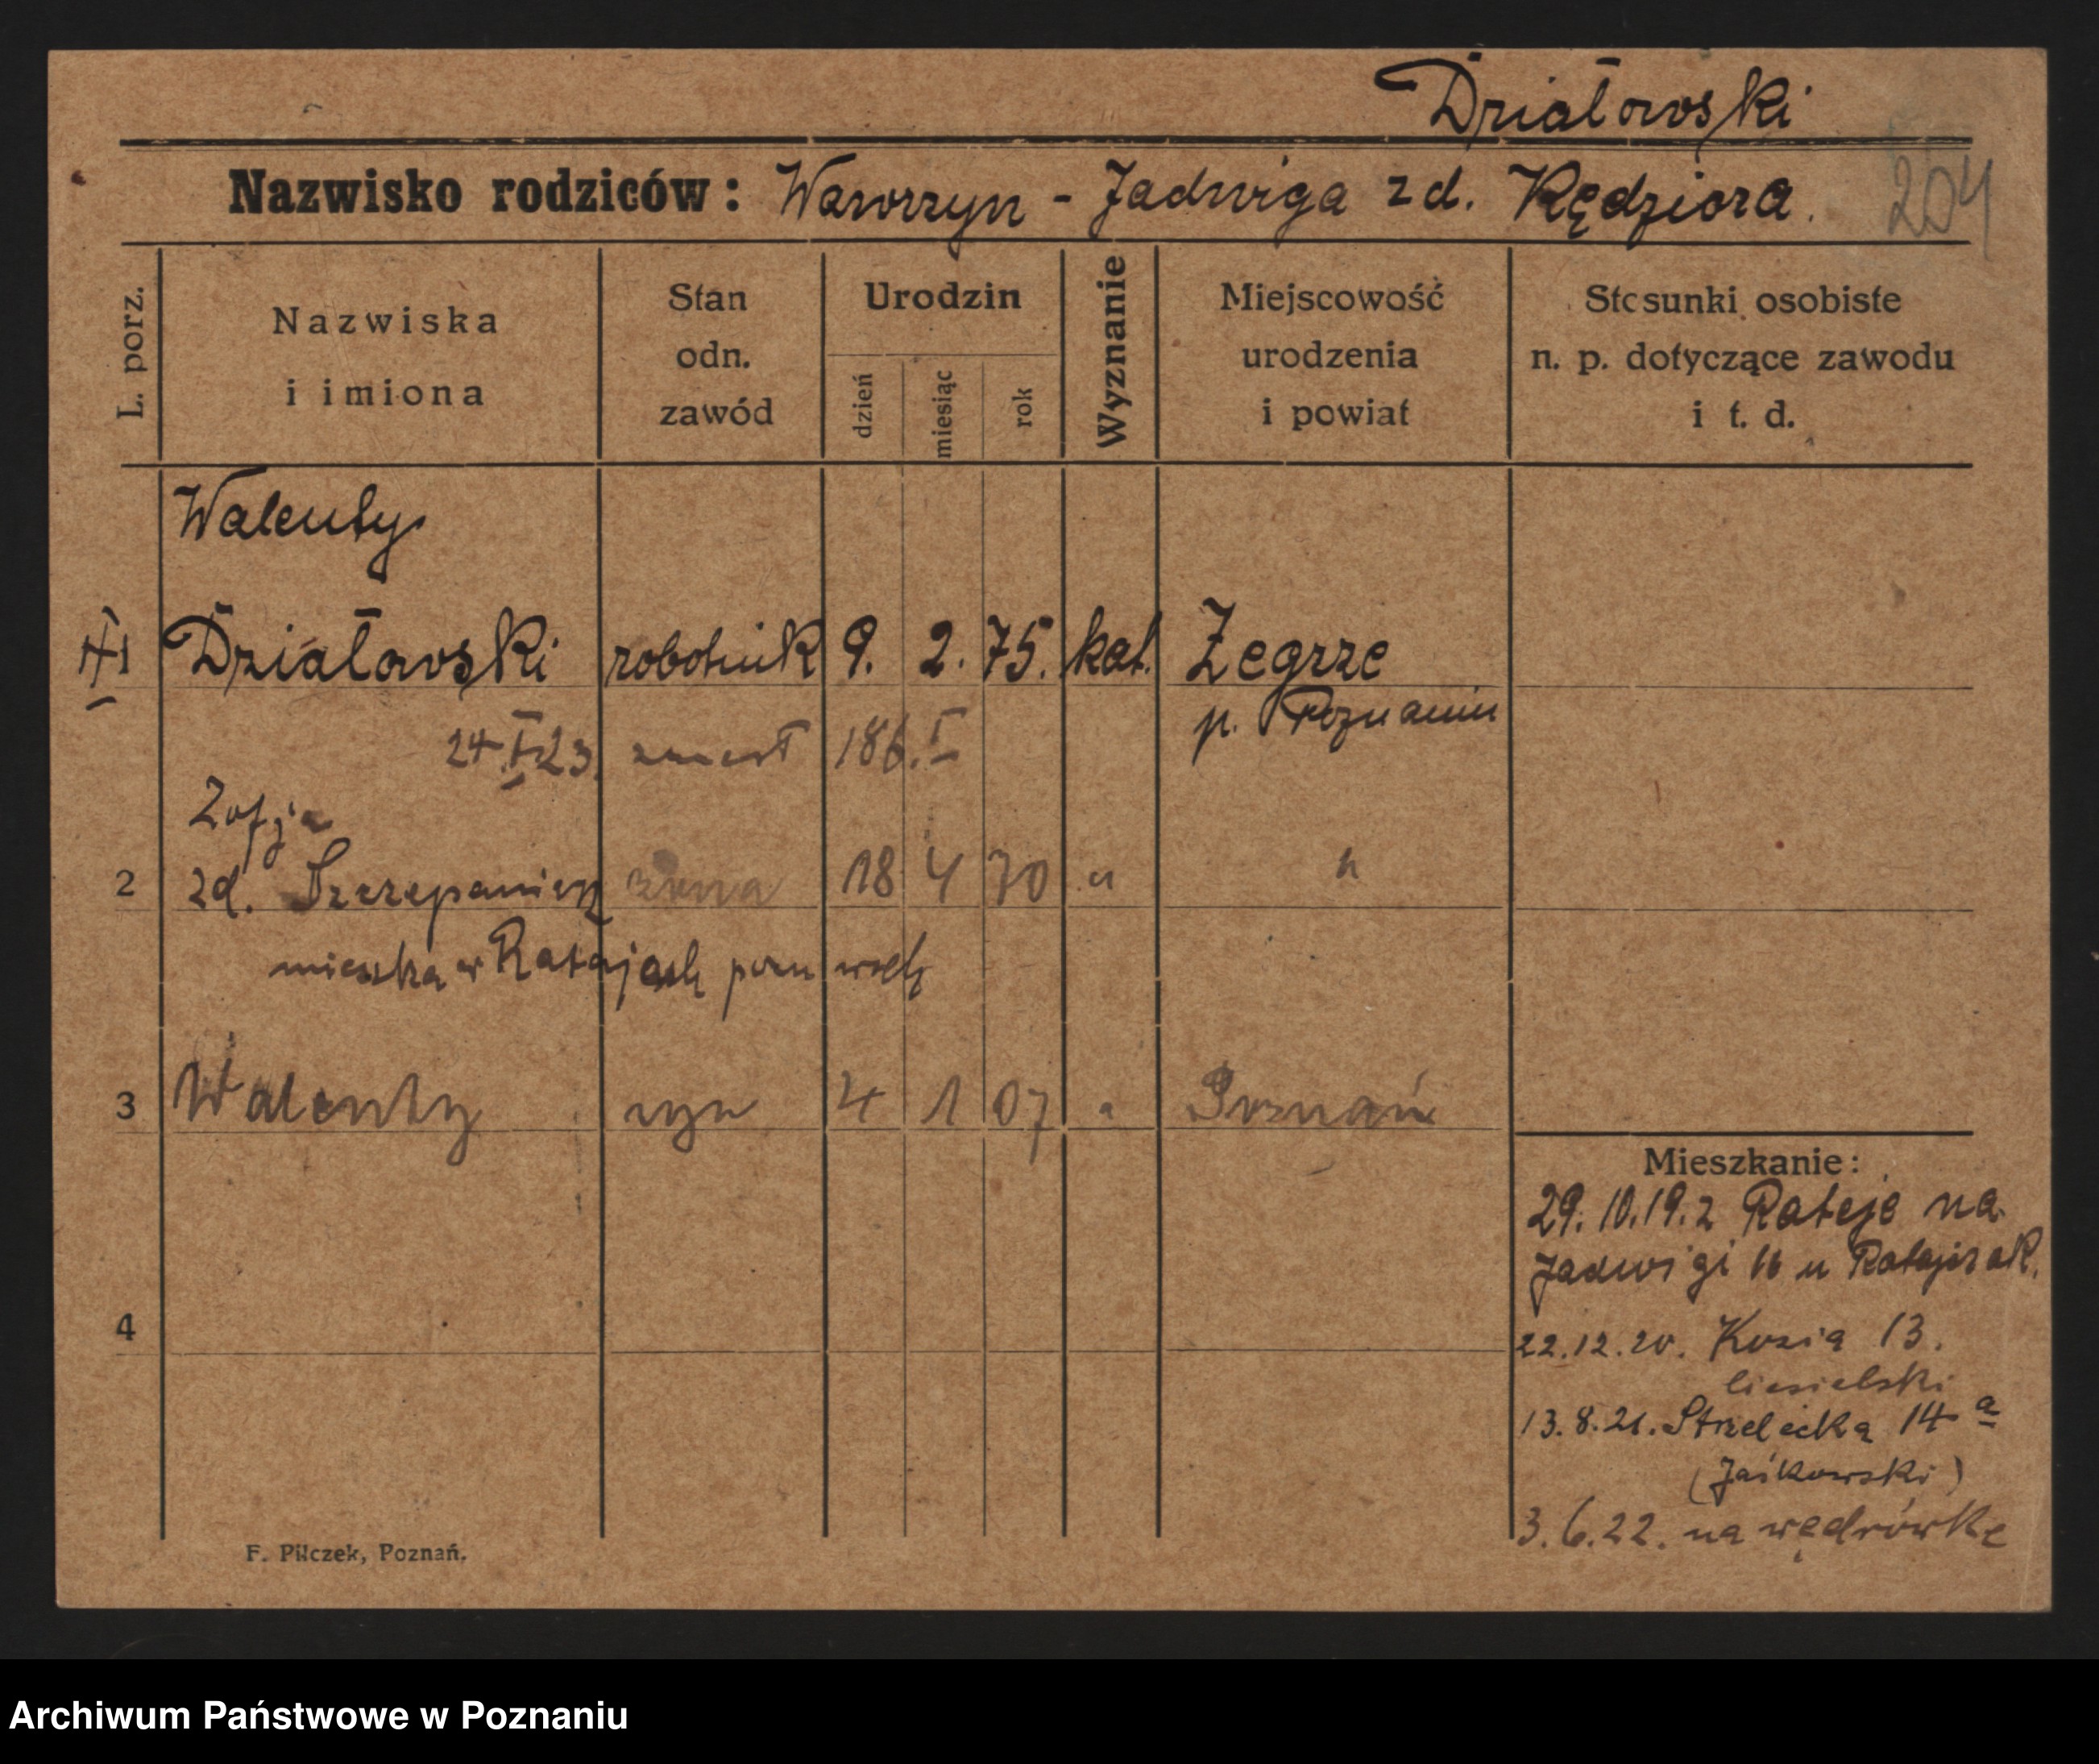 Działowski
Nazwisko rodziców: Wawrzyn - Jadwiga zd. Kędziora.
204
L. porz.
Nazwiska
i imiona
Stan
odn.
zawód
Urodzin
dzień
miesiąc
rok
Wyznanie
Miejscowość
urodzenia
i powiat
Stosunki osobiste
n. p. dotyczące zawodu
i t. d.
Walenty
1 Działowski robotnik 9. 2. 75. kat. Żegrze
p. Poznaniu
24.I.23. zmarł 186.I
Zofja
2 zd. Szczepaniak żona 18 4 70 " "
mieszka w Ratajach
3 Walenty syn 4 1 07 " Poznań
4
Mieszkanie:
29. 10. 19. z Rataje na
Jadwigi 16 u Ratajczak.
22.12.20. Kozia 13.
Ciesielski
13.8.21. Strzelecka 14 a
(Jaśkowski)
3.6.22. na wędrówkę
F. Pilczek, Poznań.
Archiwum Państwowe w Poznaniu